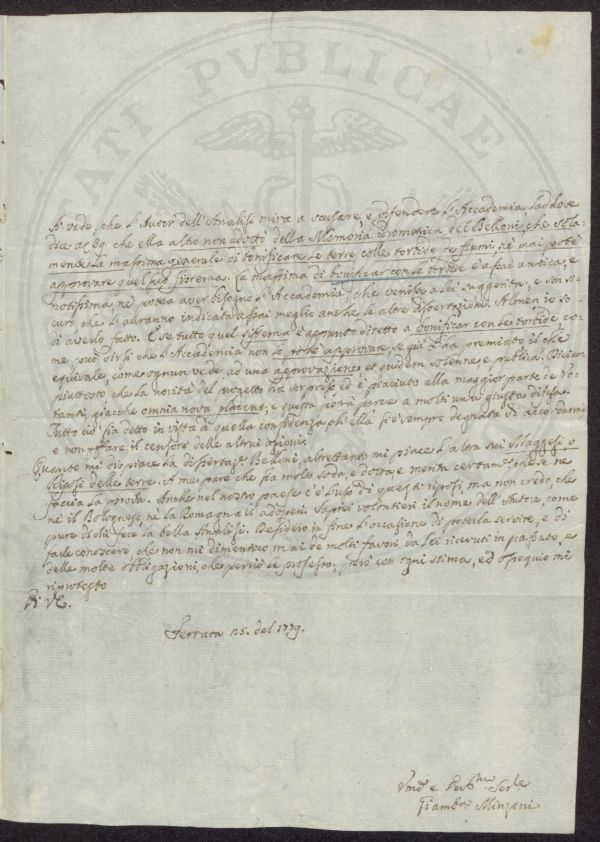 PVBLICAE
Si vede, che l'Autor dell'Analisi mira a scusare, e difendere l'Accademia, laddove
dice al §9 che ella altro non adottò della Memoria Economica del Belloni, che sola-
mente la massima generale di bonificare le terre colle torbide de' fiumi nè mai potè
approvare quel suo sistema. La massima di bonificar con le torbide è assai antica, e
notissima nè potea aver bisogno l'Accademia, che venisse a lei suggerita, e son si-
curo che l'avranno indicata assai meglio anche le altre dissertazioni. Almen io so
di averlo fatto. E se tutto quel sistema è appunto diretto a bonificar con le torbide co-
me può dirsi che l'Accademia non le potè approvare, se già l'ha premiato il che
equivale, come ognun vede ad una approvazione, et quidem solenne, e publica. Diciam
piuttosto che la novità del progetto ha sorpreso ed è piaciuto alla maggior parte de' Vo-
tanti, giacchè omnia nova placent, e questa potrà parere a molti una giusta difesa.
Tutto ciò sia detto in vista di quella confidenza ch'ella si è sempre degnata di accordarmi
e non per fare il censore delle altrui azioni.
Quanto mi dispiace la dissertaz. Belloni, altrettanto mi piace l'altra sui Maggesi, o
riposi delle terre. A me pare che sia molto soda, e dotta e merita certamte che se ne
faccia la prova. Anche nel nostro paese c'è l'uso di questi riposi, ma non credo, che
nè il Bolognese nè la Romagna li adoperi. Saprei volontieri il nome dell'Autore, come
pure di chi fece la bella Analisi. Desidero in fine l'occasione di poterla servire, e di
farle conoscere che non mi dimentico mai de' molti favori da Lei ricevuti in passato, e
delle molte obbligazioni, che perciò le professo, però con ogni stima, ed ossequio mi
riprotesto
Di VS.
Ferrara 25. del 1779.
Giambr. Minzoni